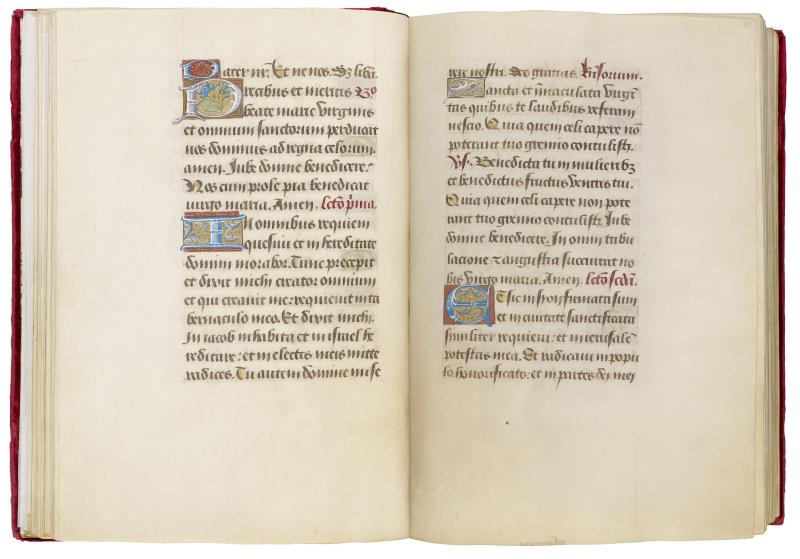 Pater nr̄. Et ne nos. Sz liba.
Precibus et meritis
beate marie virginis
et omnium sanctorum perducat
nos dominus ad regna celorum.
amen. Jube domne benedicere.
Nos cum prole pia benedicat
virgo maria. Amen. lctō p̄ma.
In omnibus requiem
quesivi et in hereditate
domini morabor. Tunc precepit
et dixit michi creator omnium
et qui creavit me: requievit in ta
bernaculo meo. Et dixit michi.
In iacob inhabita et in israel he
reditare: et in electis meis mitte
radices. Tu autem domine mise
rere nostri. Deo gratias.
Sancta et īmaculata virgī
tas quibus te laudibus referam
nescio. Quia quem celi capere nō
poterant tuo gremio contulisti.
Vs. Benedicta tu in mulierebz
et benedictus fructus ventris tui.
Quia quem celi capere non pote
rant tuo gremio contulisti. Jube
domne benedicere. In omni tribu
lacione et angustia succurrat no
bis virgo maria. Amen. lctō scdā.
Et sic in syon firmata sum
et in civitate sanctificata
similiter requievi: et in ierusalē
potestas mea. Et radicavi in popu
lo honorificato: et in partes dei mei